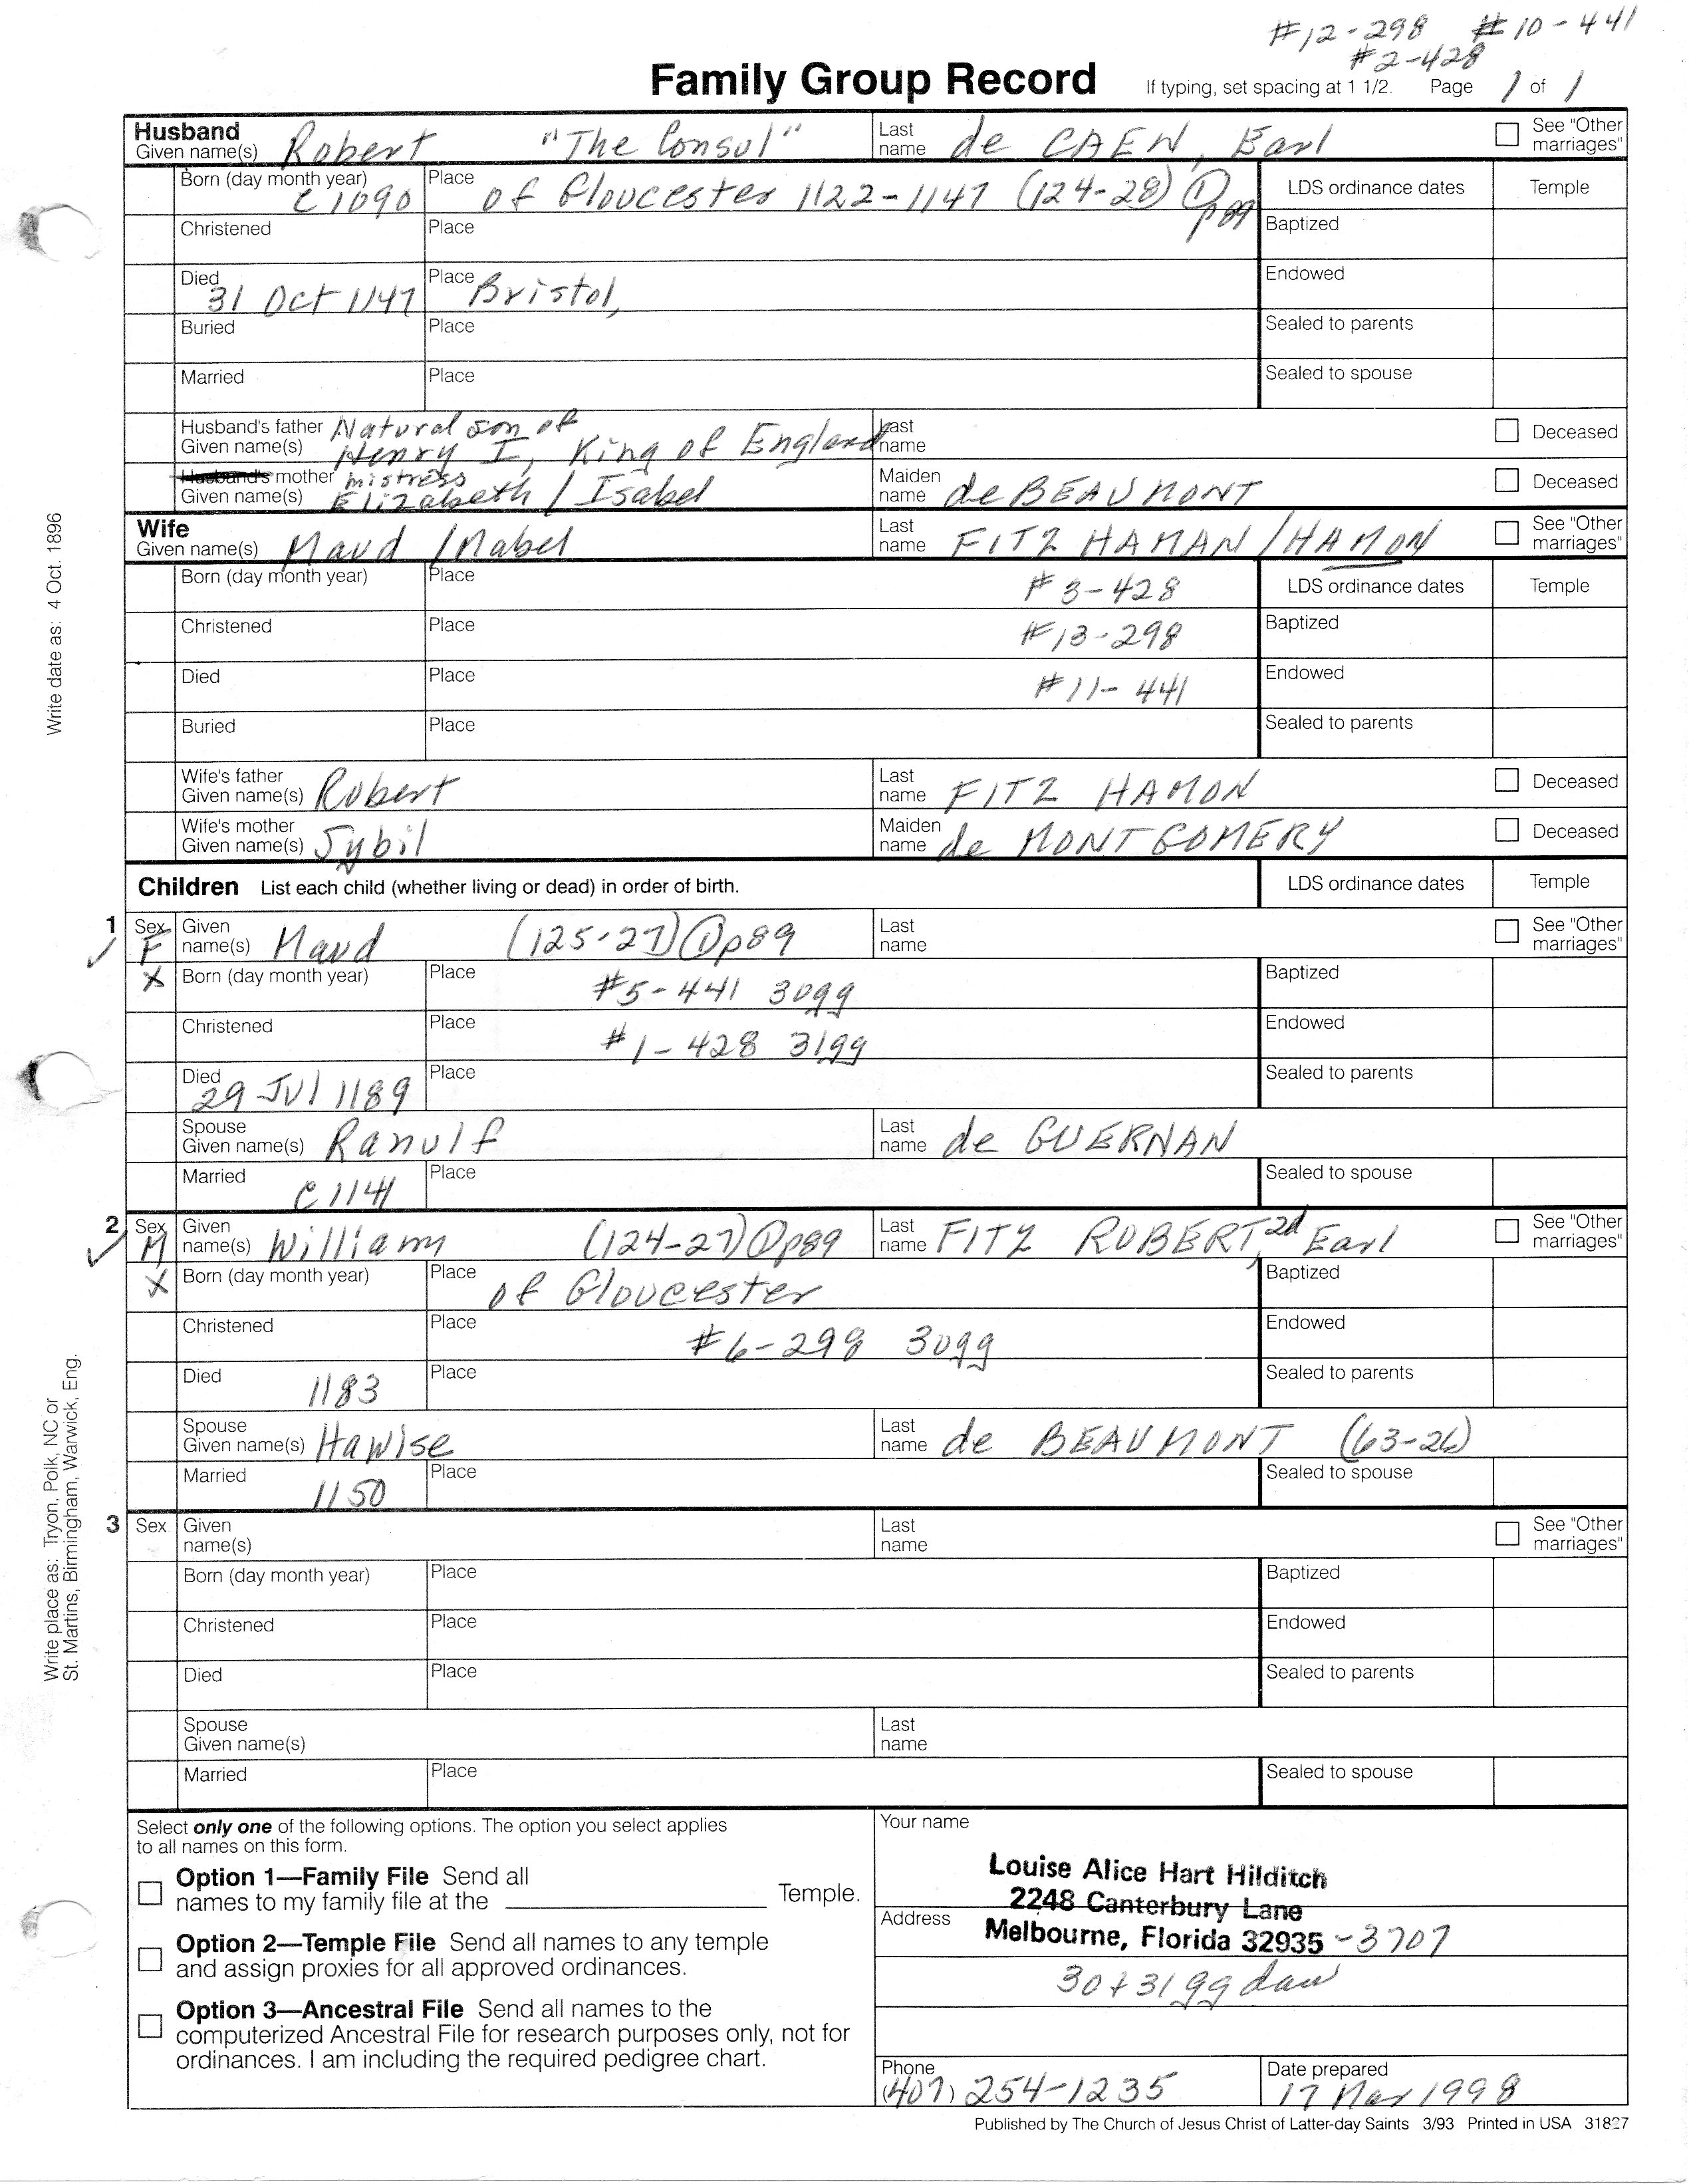 #12-298 #10-441
#2-428
Family Group Record If typing, set spacing at 1 1/2. Page 1 of 1
Husband
Given name(s) Robert "The Consul" Last name de CAEN, Earl See "Other marriages"
Born (day month year) c 1090 Place of Gloucester 1122-1147 (124-28) ① p89 LDS ordinance dates Temple
Christened Place Baptized
Died 31 Oct 1147 Place Bristol, Endowed
Buried Place Sealed to parents
Married Place Sealed to spouse
Husband's father Given name(s) Natural son of Henry I, King of England Last name Deceased
Husband's mother Given name(s) mistress Elizabeth / Isabel Maiden name de BEAUMONT Deceased
Wife
Given name(s) Maud / Mabel Last name FITZ HAMAN / HAMON See "Other marriages"
Born (day month year) Place #3-428 LDS ordinance dates Temple
Christened Place #13-298 Baptized
Died Place #11-441 Endowed
Buried Place Sealed to parents
Wife's father Given name(s) Robert Last name FITZ HAMON Deceased
Wife's mother Given name(s) Sybil Maiden name de MONTGOMERY Deceased
Children List each child (whether living or dead) in order of birth. LDS ordinance dates Temple
1 Sex F Given name(s) Maud (125-27) ① p89 Last name See "Other marriages"
X Born (day month year) Place #5-441 30gg Baptized
Christened Place #1-428 31gg Endowed
Died 29 Jul 1189 Place Sealed to parents
Spouse Given name(s) Ranulf Last name de GUERNAN
Married c 1141 Place Sealed to spouse
2 Sex M Given name(s) William (124-27) ① p89 Last name FITZ ROBERT, 2d Earl See "Other marriages"
X Born (day month year) Place of Gloucester Baptized
Christened Place #6-298 30gg Endowed
Died 1183 Place Sealed to parents
Spouse Given name(s) Hawise Last name de BEAUMONT (63-26)
Married 1150 Place Sealed to spouse
3 Sex Given name(s) Last name See "Other marriages"
Born (day month year) Place Baptized
Christened Place Endowed
Died Place Sealed to parents
Spouse Given name(s) Last name
Married Place Sealed to spouse
Select only one of the following options. The option you select applies
to all names on this form.
Option 1—Family File Send all
names to my family file at the Temple.
Option 2—Temple File Send all names to any temple
and assign proxies for all approved ordinances.
Option 3—Ancestral File Send all names to the
computerized Ancestral File for research purposes only, not for
ordinances. I am including the required pedigree chart.
Your name
Louise Alice Hart Hilditch
2248 Canterbury Lane
Address
Melbourne, Florida 32935 -3707
30+31 gg dau
Phone (407) 254-1235 Date prepared 17 Mar 1998
Published by The Church of Jesus Christ of Latter-day Saints 3/93 Printed in USA 31827
Write date as: 4 Oct. 1896
Write place as: Tryon, Polk, NC or
St. Martins, Birmingham, Warwick, Eng.